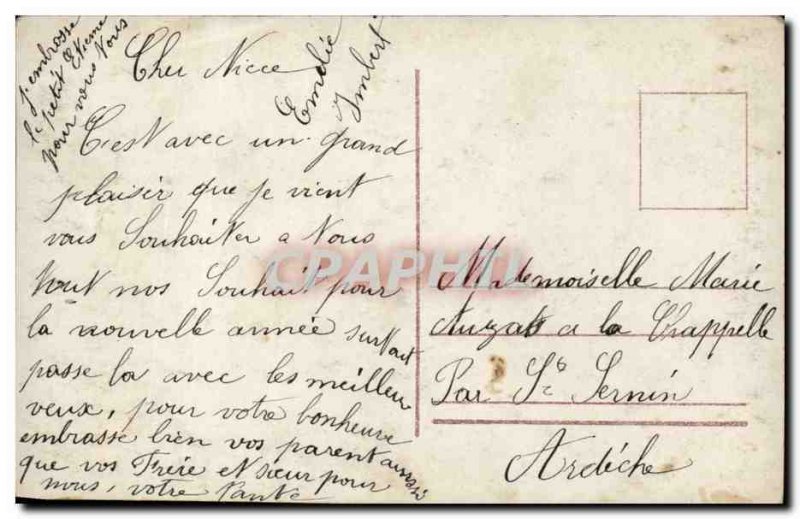 Cher Niece
C'est avec un grand
plaisir que je vient
vous Souhaiter a Nous
tout nos Souhait pour
la nouvelle année surtout
passe la avec les meilleur
veux, pour votre bonheure
embrasse bien vos parent aussi
que vos Frère et sœur pour
nous, votre Tante
Emelie
Imbert
j'embrasse
le petit Etieme
pour vous Nous
Mademoiselle Marie
Auzas a la Chappelle
Par St Sernin
Ardèche
CPAPHIL